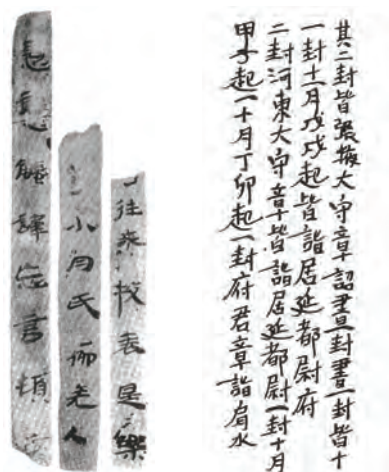 其二封皆張掖大守章詔書一封書一封皆十
一封十一月戊戌起皆詣居延都尉府
二封河東大守章皆詣居延都尉一封十月
甲子起一十月丁卯起一封府君章詣肩水
往表是樂
小月氏老人
譯忘言